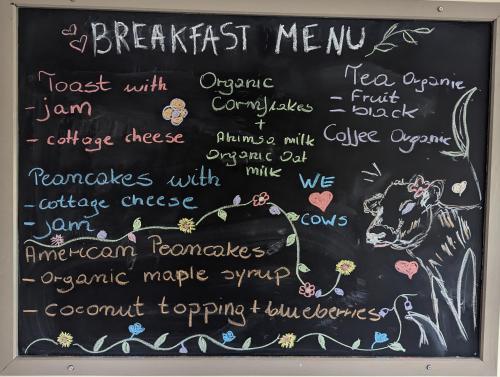 BREAKFAST MENU
Toast with
- jam
- cottage cheese
Peancakes with
- cottage cheese
- jam
American Peancakes
- Organic maple syrup
- coconut topping + blueberries
Organic
Cornflakes
+
Ahimsa milk
Organic Oat
milk
WE
COWS
Tea Organic
- Fruit
- black
Coffee Organic